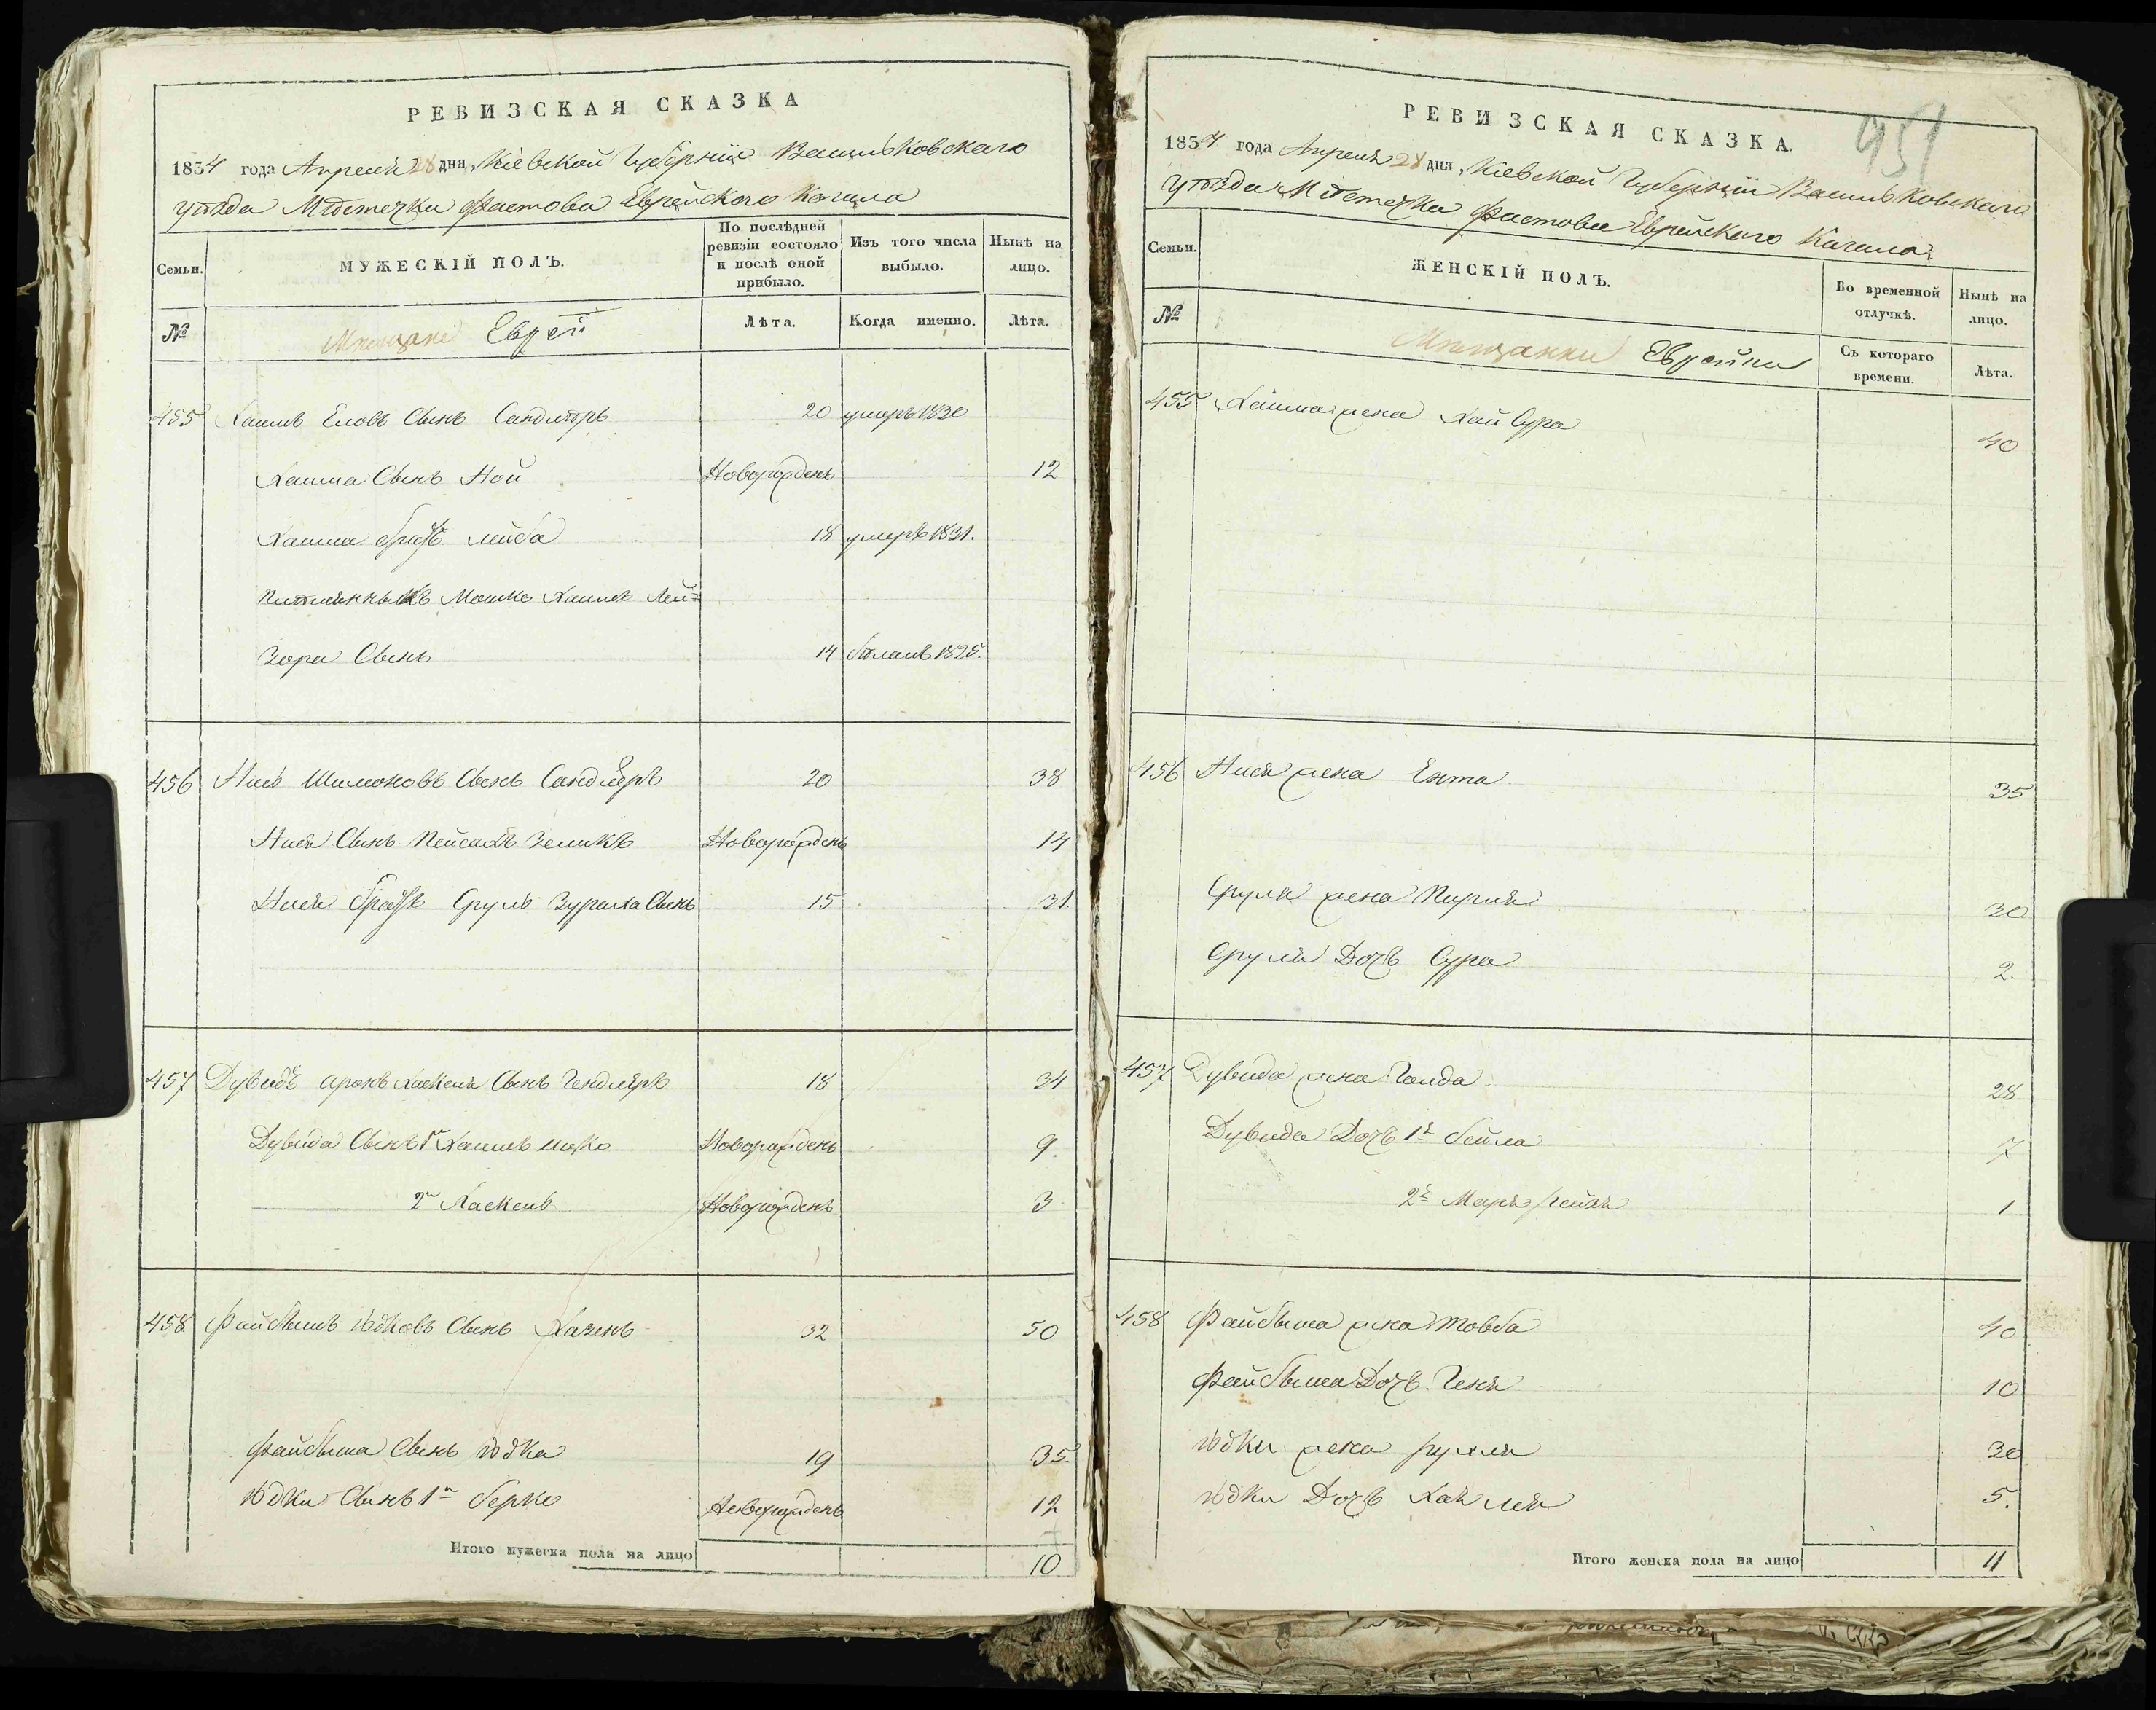 РЕВИЗСКАЯ СКАЗКА
1834 года Апреля 28 дня, Кіевской Губерніи Васильковскаго
уѣзда Мѣстечка Фастова Еврейского Кагала
Семьи.
МУЖЕСКІЙ ПОЛЪ.
По послѣдней ревизіи состояло и послѣ оной прибыло.
Изъ того числа выбыло.
Нынѣ на лицо.
№
Мѣщане Евреи
Лѣта.
Когда именно.
Лѣта.
455 Хаимъ Еловъ Сынъ Сандлеръ 20 умеръ 1830
Хаима Сынъ Ной Новорожденъ 12
Хаима братъ Лейба 18 умеръ 1831.
Племянникъ Мошко Хаимъ Лей=
зора Сынъ 14 1825.
456 Нисъ Шимоновъ Сынъ Сандлеръ 20 38
Нися Сынъ Пейсахъ Зеликъ Новорожденъ 14
Нися братъ Сруль Сынъ 15 31.
457 Дувидъ Аронъ Хаскеля Сынъ Гендлеръ 18 34
Дувида Сынъ 1й Хаимъ Ицко Новорожденъ 9.
2й Хаскель Новорожденъ 3
458 Файбишъ Юдковъ Сынъ Казенъ 32 50
Файбиша Сынъ Юдка 19 35.
Юдки Сынъ 1й Берко Новорожденъ 12
Итого мужеска пола на лицо 10
РЕВИЗСКАЯ СКАЗКА.
951
1834 года Апреля 28 дня, Кіевской Губерніи Васильковскаго
уѣзда Мѣстечка Фастова Еврейского Кагала
Семьи.
ЖЕНСКІЙ ПОЛЪ.
Во временной отлучкѣ.
Нынѣ на лицо.
№
Мѣщанки Еврейки
Съ котораго времени.
Лѣта.
455 Хаима жена Хай Сура 40
456 Нися жена Ента 35
Сруля жена Перля 30
Сруля Дочь Сура 2.
457 Дувида жена Голда 28
Дувида Дочь 1я Бейла 7
2я Маря Рейзя 1
458 Файбиша жена Товба 40
Файбиша Дочь Геня 10
Юдки жена Рухля 30
Юдки Дочь 5.
Итого женска пола на лицо 11